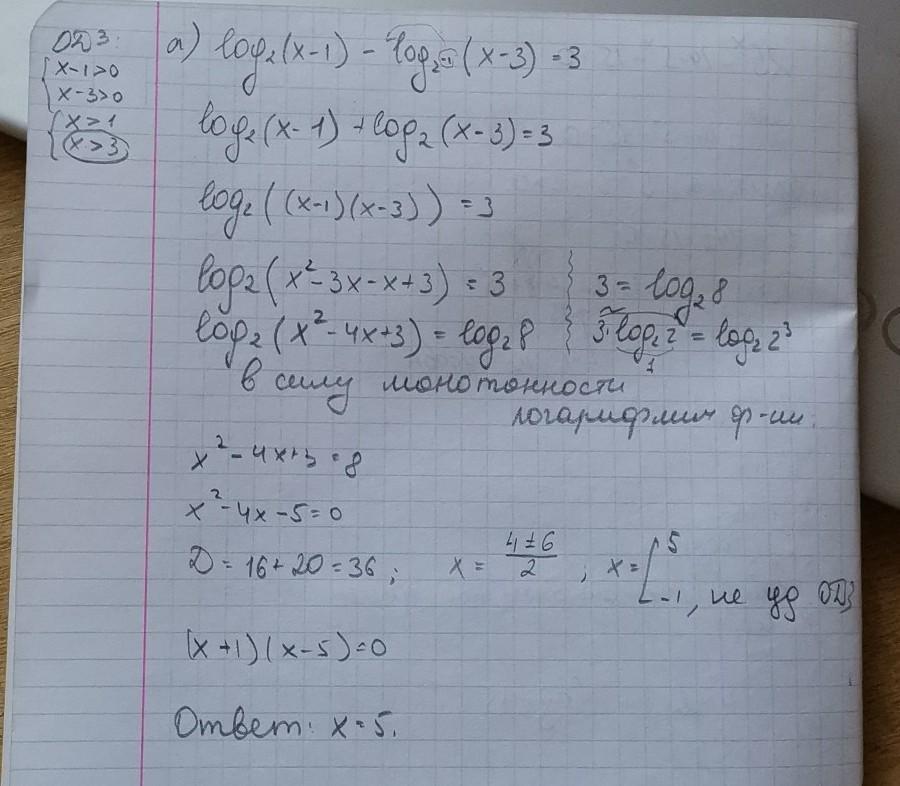 ОДЗ:
{ x-1>0
x-3>0
{ x>1
x>3
а) log₂(x-1) - log₂₋₁(x-3) = 3
log₂(x-1) + log₂(x-3) = 3
log₂((x-1)(x-3)) = 3
log₂(x²-3x-x+3) = 3 3 = log₂8
log₂(x²-4x+3) = log₂8 3·log₂2 = log₂2³
1
в силу монотонности
логарифмич ф-ии.
x²-4x+3=8
x²-4x-5=0
D = 16+20=36; x = (4±6)/2 ; x = [ 5
-1, не уд ОДЗ
(x+1)(x-5)=0
Ответ: x=5.